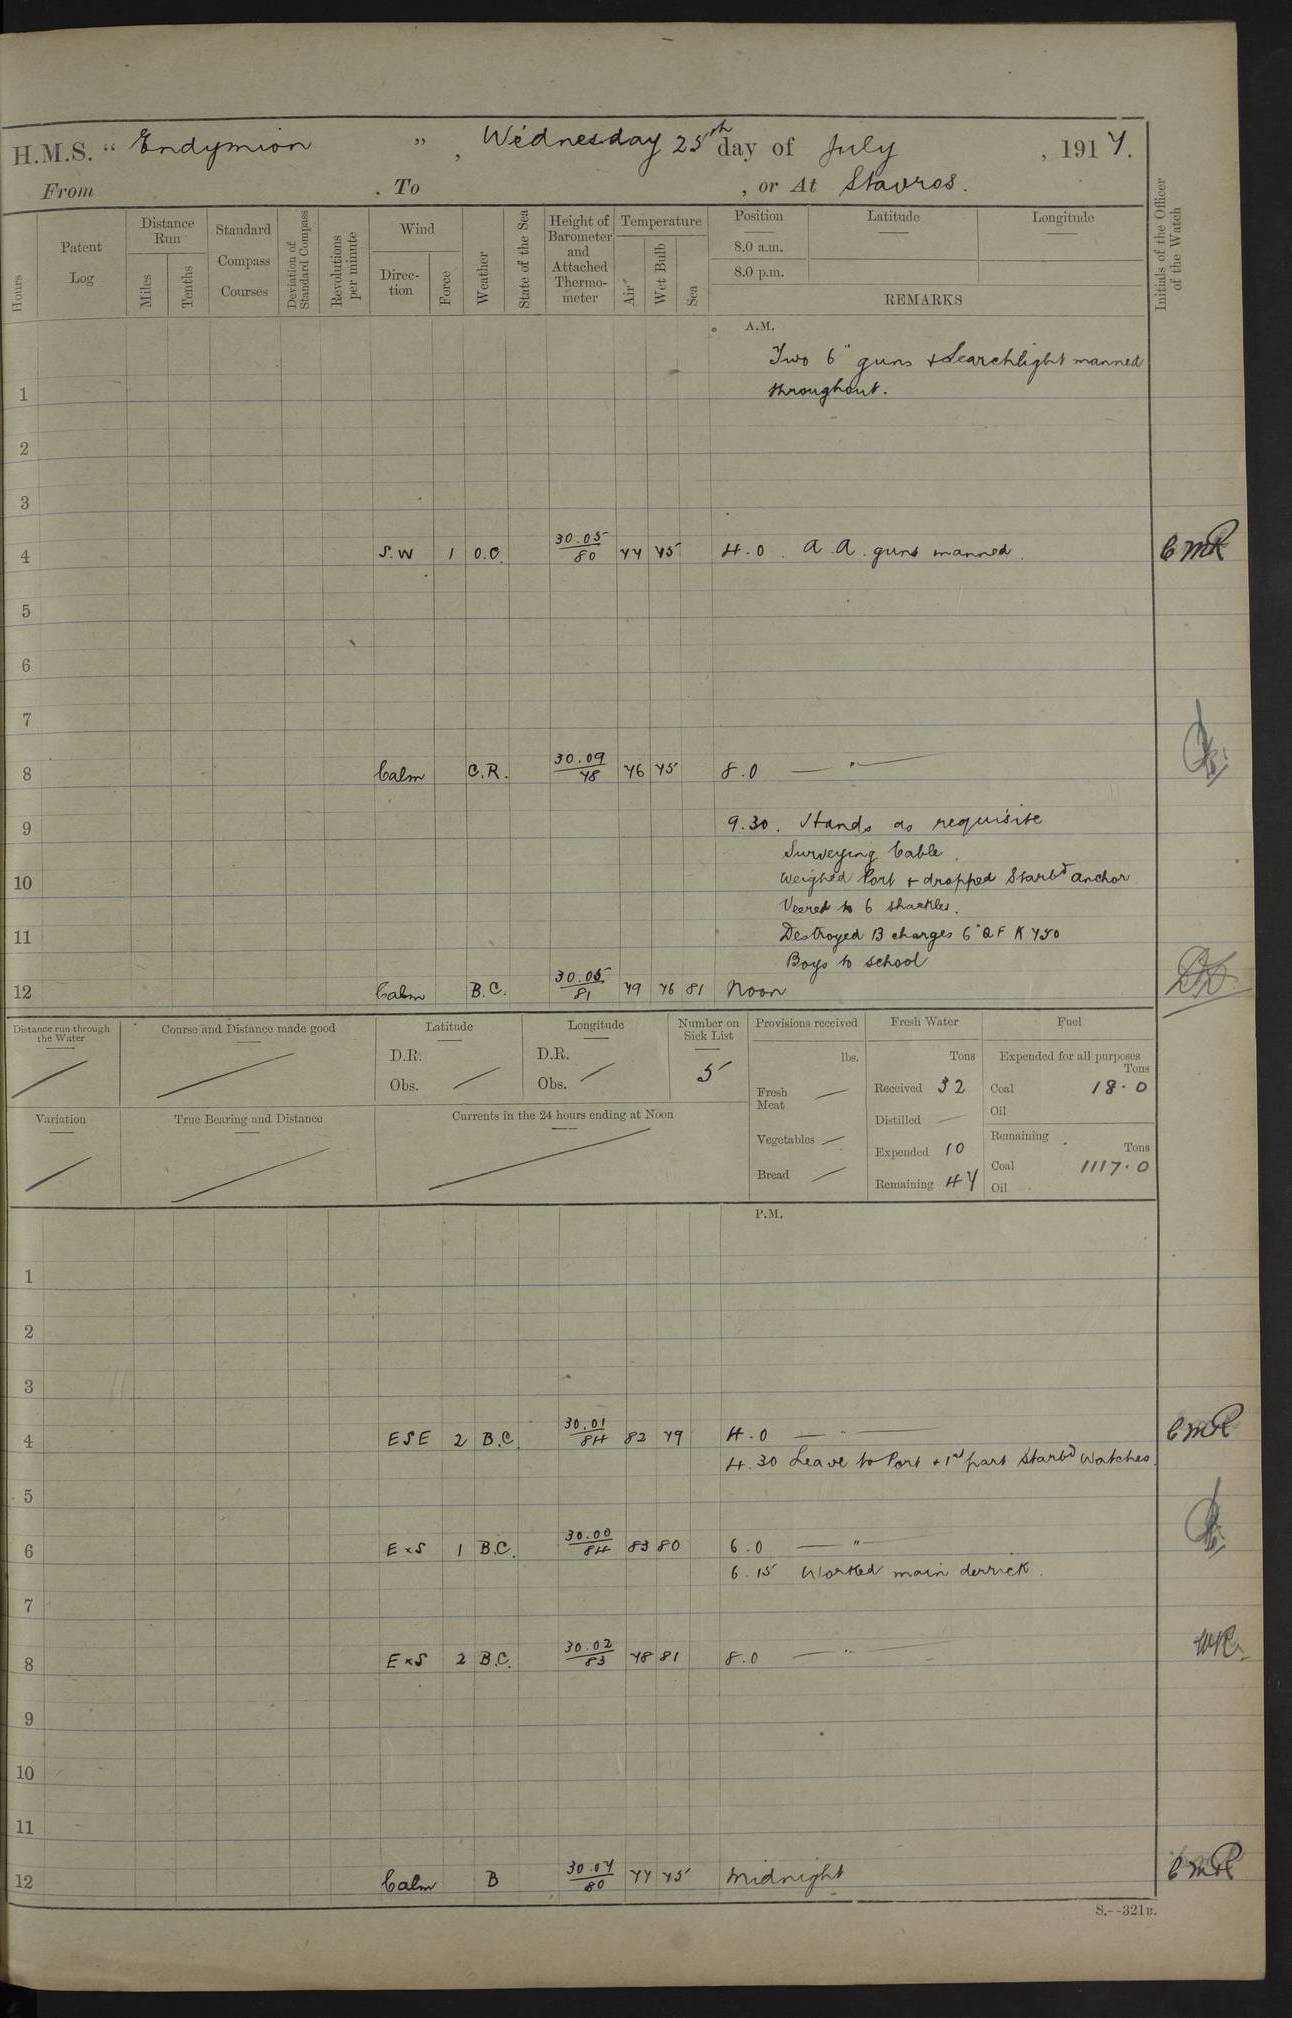 H.M.S. “ Endymion ” , Wednesday 25th day of July , 1917.
From . To , or At Stavros.
Hours
Patent Log
Distance Run
Miles
Tenths
Standard Compass Courses
Deviation of Standard Compass
Revolutions per minute
Wind
Direction
Force
Weather
State of the Sea
Height of Barometer and Attached Thermometer
Temperature
Air
Wet Bulb
Sea
Position
8.0 a.m.
8.0 p.m.
Latitude
Longitude
REMARKS
Initials of the Officer of the Watch
A.M.
Two 6" guns + Searchlight manned
1 throughout.
2
3
4 S.W 1 O.C. 30.05/80 77 75 4.0 . A.A. guns manned. CMR
5
6
7
8 Calm C.R. 30.09/78 76 75 8.0 — " —
9 9.30. Hands as requisite
Surveying Cable.
10 Weighed Port + dropped Starbd anchor
Veered to 6 shackles.
11 Destroyed 13 charges 6" QF K 750
Boys to school
12 Calm B.C. 30.05/81 79 76 81 Noon
Distance run through the Water
Course and Distance made good
Latitude
D.R.
Obs.
Longitude
D.R.
Obs.
Number on Sick List
5
Provisions received
lbs.
Fresh Meat —
Vegetables —
Bread —
Fresh Water
Tons
Received 32
Distilled —
Expended 10
Remaining 47
Fuel
Expended for all purposes
Tons
Coal 18.0
Oil
Remaining
Tons
Coal 1117.0
Oil
Variation
True Bearing and Distance
Currents in the 24 hours ending at Noon
P.M.
1
2
3
4 ESE 2 B.C. 30.01/84 82 79 4.0 — " — CMR
4.30 Leave to Port + 1st part Starbd Watches.
5
6 E x S 1 B.C. 30.00/84 83 80 6.0 — " —
6.15 Worked main derrick.
7
8 E x S 2 B.C. 30.02/83 78 81 8.0 — " —
9
10
11
12 Calm B 30.07/80 77 75 Midnight CMR
S.--321B.